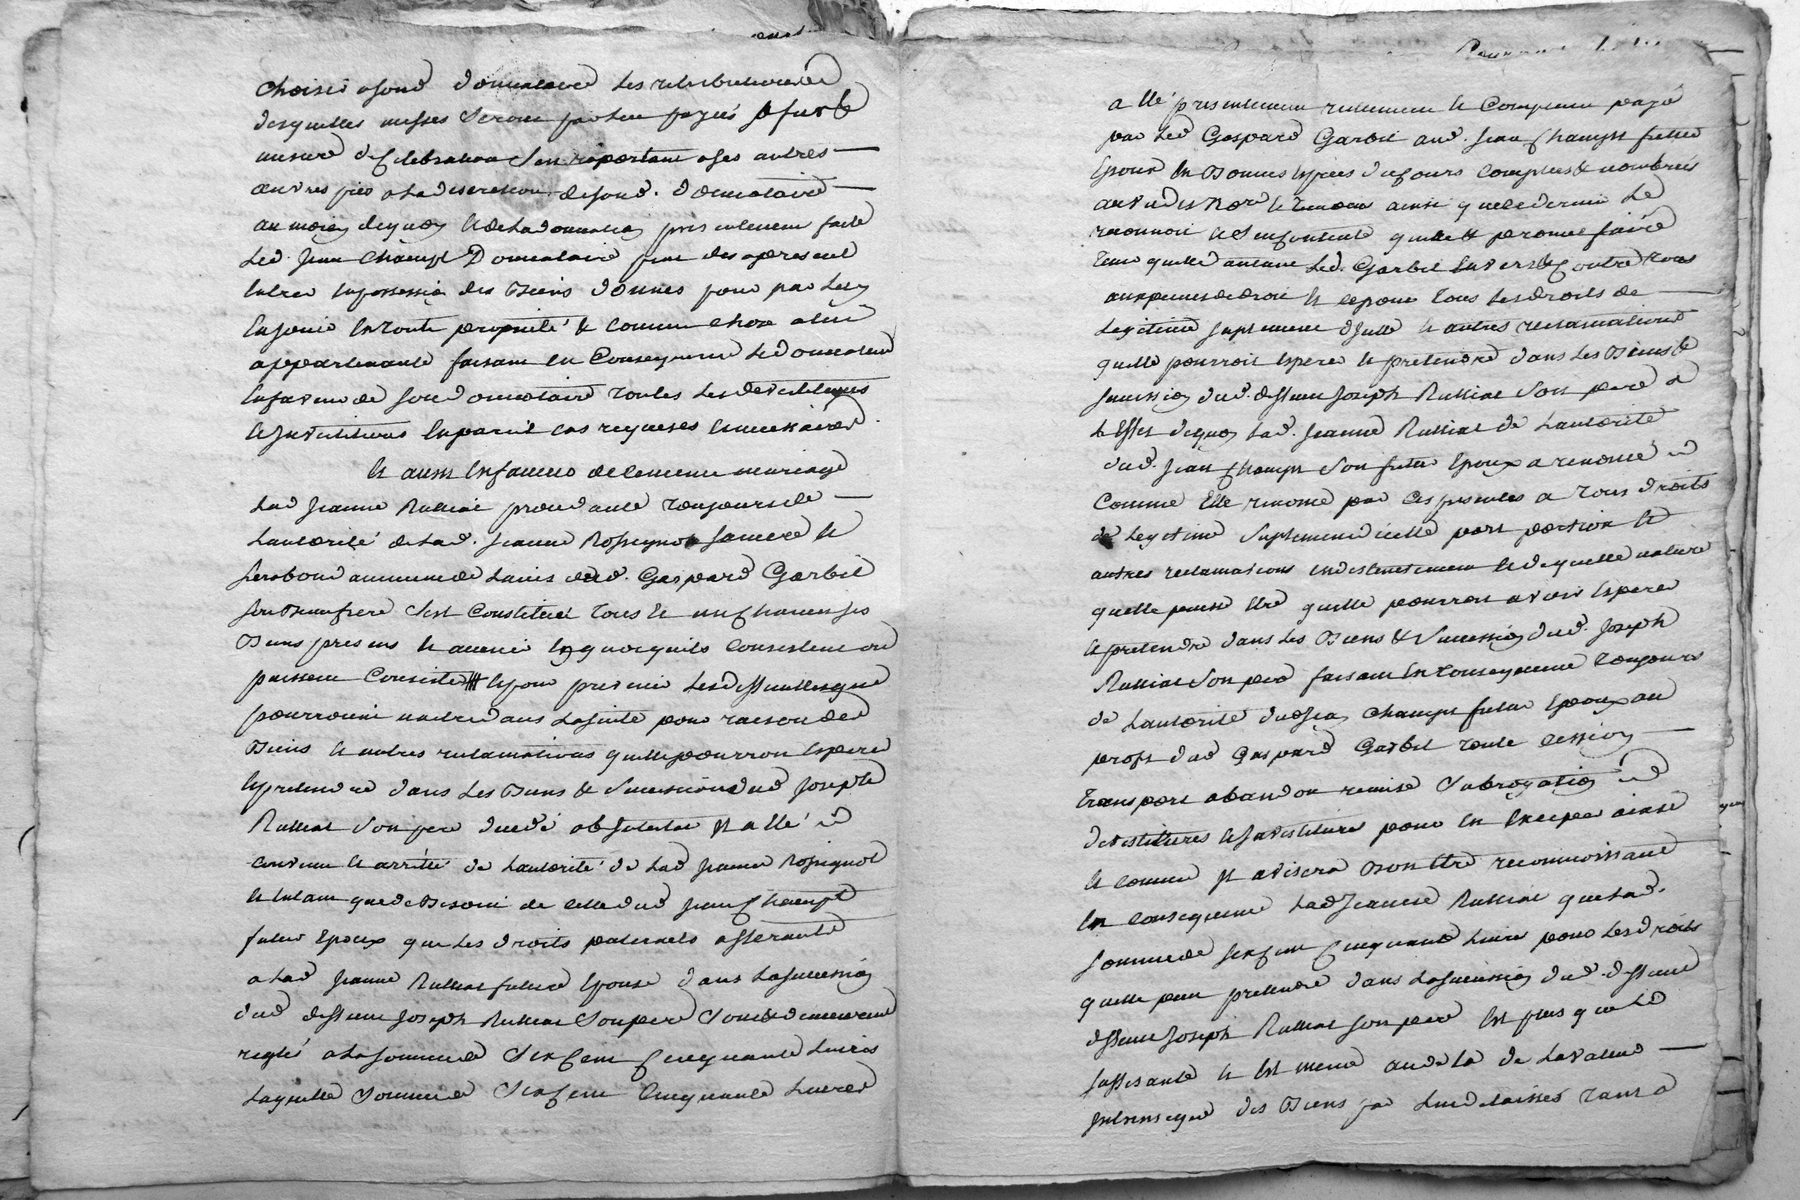 choisis par led donataire les retributions
desquelles messes seront par luy payées a fur &
mesure de celebration s'en raportant a ses autres
œuvres pies a la discretion desond. donataire
au moien de quoy & de la donnation presentement faite
led. Jean Champt Donnataire peut des apresent
entrer en possession des Biens donnés pour par luy
en jouir en toute proprieté & comme chose a luy
appartenante faisant en consequence le donnateur
en faveur de son donnataire toutes les devestitures
& investitures en pareil cas requises & necessaires.
Et aussi en faveur de ce meme mariage
lad Jeanne Rulliat procedante toujours de
l'autorité de lad. Jeanne Rossignol sa mere &
sous bon aussi de l'avis dud. Gaspard Garbil
son beaufrere s'est constitué tous & un chacun ses
Biens presens & avenir en quoy qu'ils consistent ou
puissent consister & pour prevenir les dificultés que
pourroient naitre dans la suite pour raison des
Biens & autres reclamations qu'elle pourroit esperer
& pretendre dans les Biens & succession dud Joseph
Rulliat son pere decedé ab intestat il a été
convenu & arrêté de l'autorité de lad Jeanne Rossignol
& tant que de besoin de celle dud Jean Champt
futur Epoux que les droits paternels afferants
a lad Jeanne Rulliat future Epouse dans la succession
dud deffunt Joseph Rulliat son pere sont & demeurent
reglés a la somme de six cent cinquante livres
laquelle somme de six cent cinquante livres
a été presentement reellement & comptant payé
par led Gaspard Garbil aud. Jean Champt futur
Epoux en bonnes espèces de cours comptées & nombrées
au vu des Nore & temoins ainsi que ce dernier le
reconnoit & s'en contente quitte & promet faire
tenir quitte autant led. Garbil envers & contre tous
aux peines de droit & ce pour tous les droits de
legitime suplement d'icelle & autres reclamations
qu'elle pourroit esperer & pretendre dans les Biens &
succession dud. deffunt Joseph Rulliat son pere a
l'effet de quoy lad. Jeanne Rulliat de l'autorité
dud. Jean Champt son futur Epoux a renoncé
comme Elle renonce par ces presentes a tous droits
de legitime suplement d'icelle part portion &
autres reclamations indistinctement & de quelle nature
quelle puisse être quelle pourroit avoir esperer
& pretendre dans les Biens & succession dud. Joseph
Rulliat son pere faisant en consequence toujours
de l'autorité dud Jean Champt futur Epoux au
profit dud Gaspard Garbil toute cession
transport abandon remise subrogation
devestitures & investitures pour en exciper ainsi
& comme il avisera bon être reconnoissant
en consequence lad Jeanne Rulliat que lad.
somme de six cent cinquante livres pour les droits
quelle peut pretendre dans la succession dud. deffunt
deffunt Joseph Rulliat son pere est plus que
suffisante & est meme au dela de la valeur
intrinseque des Biens par luy delaissés tant a